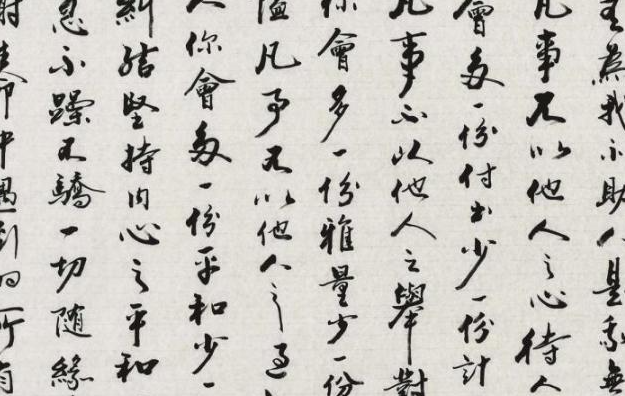 為我不助人是我無
凡事不以他人之心待人
會多一份付出少一份計
凡事不以他人之舉對
你會多一份雅量少一份
隘凡事不以他人之過
人你會多一份平和少一
糾結堅持內心之平和
不躁不驕一切隨緣
命中遇到的所有